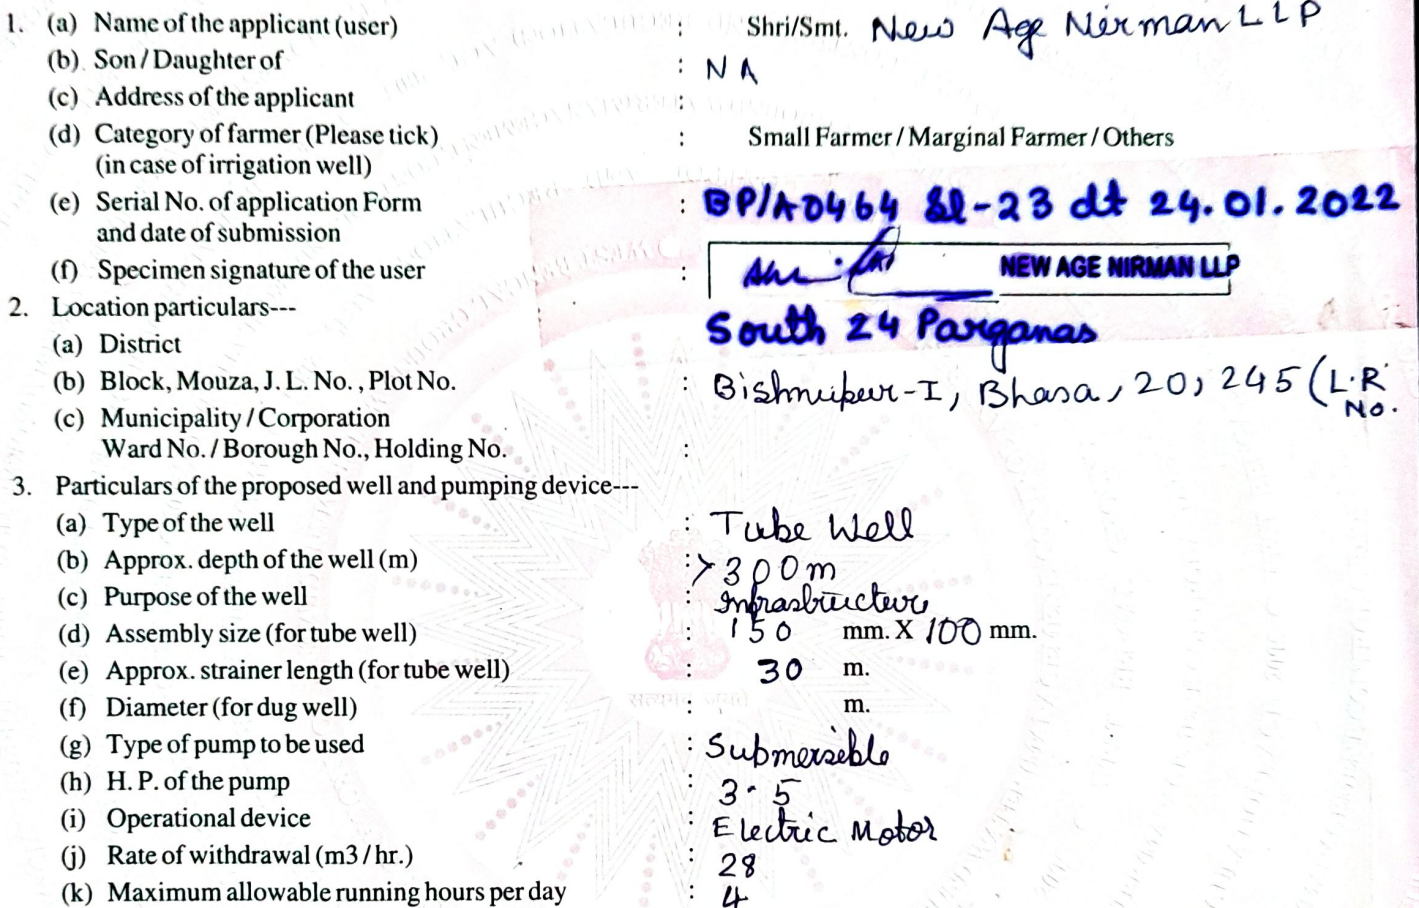 1. (a) Name of the applicant (user) : Shri/Smt. New Age Nirman LLP
(b) Son / Daughter of : NA
(c) Address of the applicant :
(d) Category of farmer (Please tick) : Small Farmer / Marginal Farmer / Others
(in case of irrigation well)
(e) Serial No. of application Form : BP/A0464 Sl-23 dt 24.01.2022
and date of submission
(f) Specimen signature of the user : NEW AGE NIRMAN LLP
2. Location particulars---
(a) District South 24 Parganas
(b) Block, Mouza, J. L. No. , Plot No. : Bishnupur-I, Bhasa, 20, 245 (L.R No.
(c) Municipality / Corporation
Ward No. / Borough No., Holding No. :
3. Particulars of the proposed well and pumping device---
(a) Type of the well : Tube Well
(b) Approx. depth of the well (m) : >300m
(c) Purpose of the well : Infrastructure
(d) Assembly size (for tube well) : 150 mm. X 100 mm.
(e) Approx. strainer length (for tube well) : 30 m.
(f) Diameter (for dug well) : m.
(g) Type of pump to be used : Submersible
(h) H. P. of the pump : 3.5
(i) Operational device : Electric Motor
(j) Rate of withdrawal (m3 / hr.) : 28
(k) Maximum allowable running hours per day : 4
सत्यमेव जयते